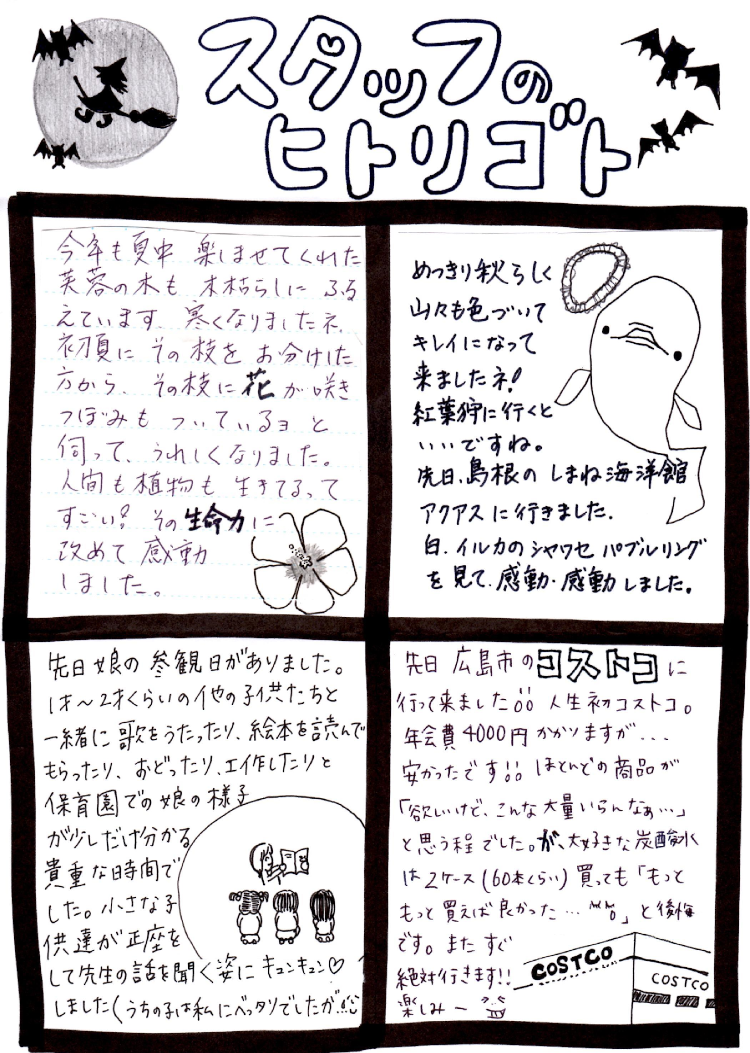 スタッフの
ヒトリゴト
今年も夏中 楽しませてくれた
芙蓉の木も 木枯らしに ふる
えています。寒くなりましたネ.
初頃に その枝を お分けした
方から、その枝に花が咲き
つぼみも ついているョ と
伺って、うれしくなりました。
人間も植物も 生きてるって
すごい!その生命力に
改めて 感動
しました。
めっきり秋らしく
山々も色づいて
キレイになって
来ましたネ!
紅葉狩に行くと
いいですね。
先日、島根の しまね海洋館
アクアスに行きました.
白.イルカのシャワセ バブルリング
を見て.感動・感動しました。
先日 娘の 参観日がありました。
1才〜2才くらいの他の子供たちと
一緒に歌をうたったり、絵本を読んで
もらったり、おどったり、工作したりと
保育園での娘の様子
が少しだけ分かる
貴重な時間で
した。小さな子
供達が正座を
して先生の話を聞く姿に キュンキュン♡
しました(うちの子は私にベッタリでしたが…
先日 広島市のコストコに
行って来ました!! 人生初コストコ。
年会費4000円かかりますが...
安かったです!! ほとんどの商品が
「欲しいけど、こんな大量いらんなぁ…」
と思う程でした。が、大好きな炭酸水
は2ケース(60本くらい)買っても「もっと
もっと買えば良かった…。」と後悔
です。また すぐ
絶対行きます!!
楽しみー
COSTCO
COSTCO